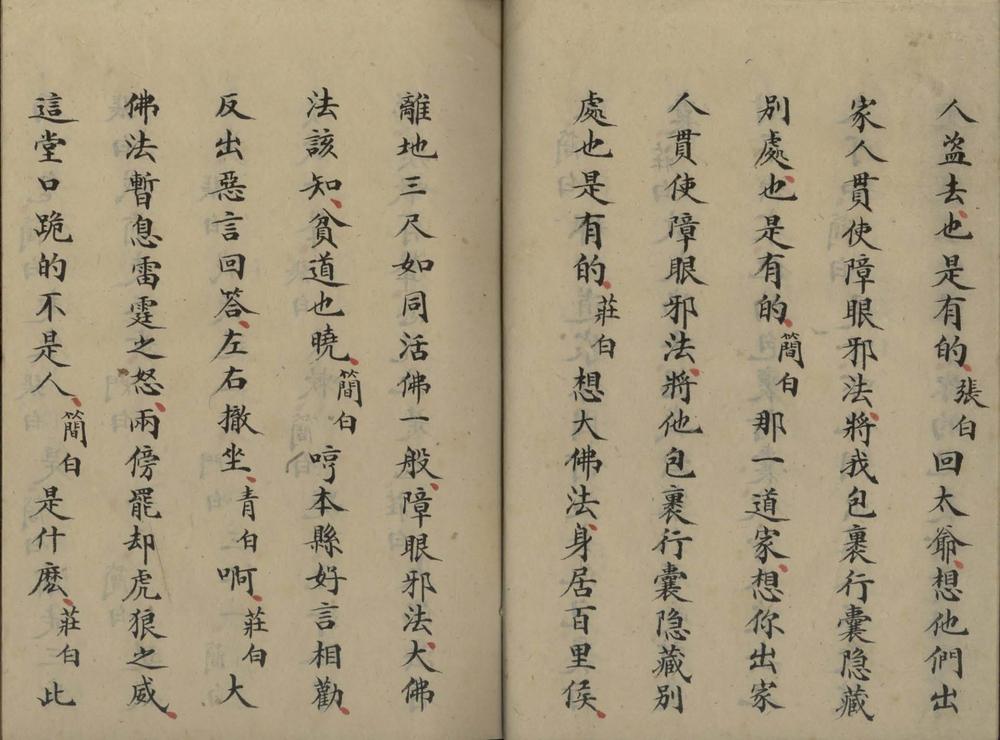 人盜去、也是有的、張白回太爺、想他們出
家人貫使障眼邪法、將我包裹行囊隐藏
別處、也是有的、簡白那一道家、想你出家
人貫使障眼邪法、將他包裹行囊隐藏別
處也是有的、莊白想大佛法、身居百里侯、
離地三尺如同活佛一般、障眼邪法、大佛
法該知、貧道也曉、簡白哼本縣好言相勸、
反出惡言回答、左右撤坐、青白啊、莊白大
佛法暫息雷霆之怒、兩傍罷却虎狼之威、
這堂口跪的不是人、簡白是什麽、莊白此